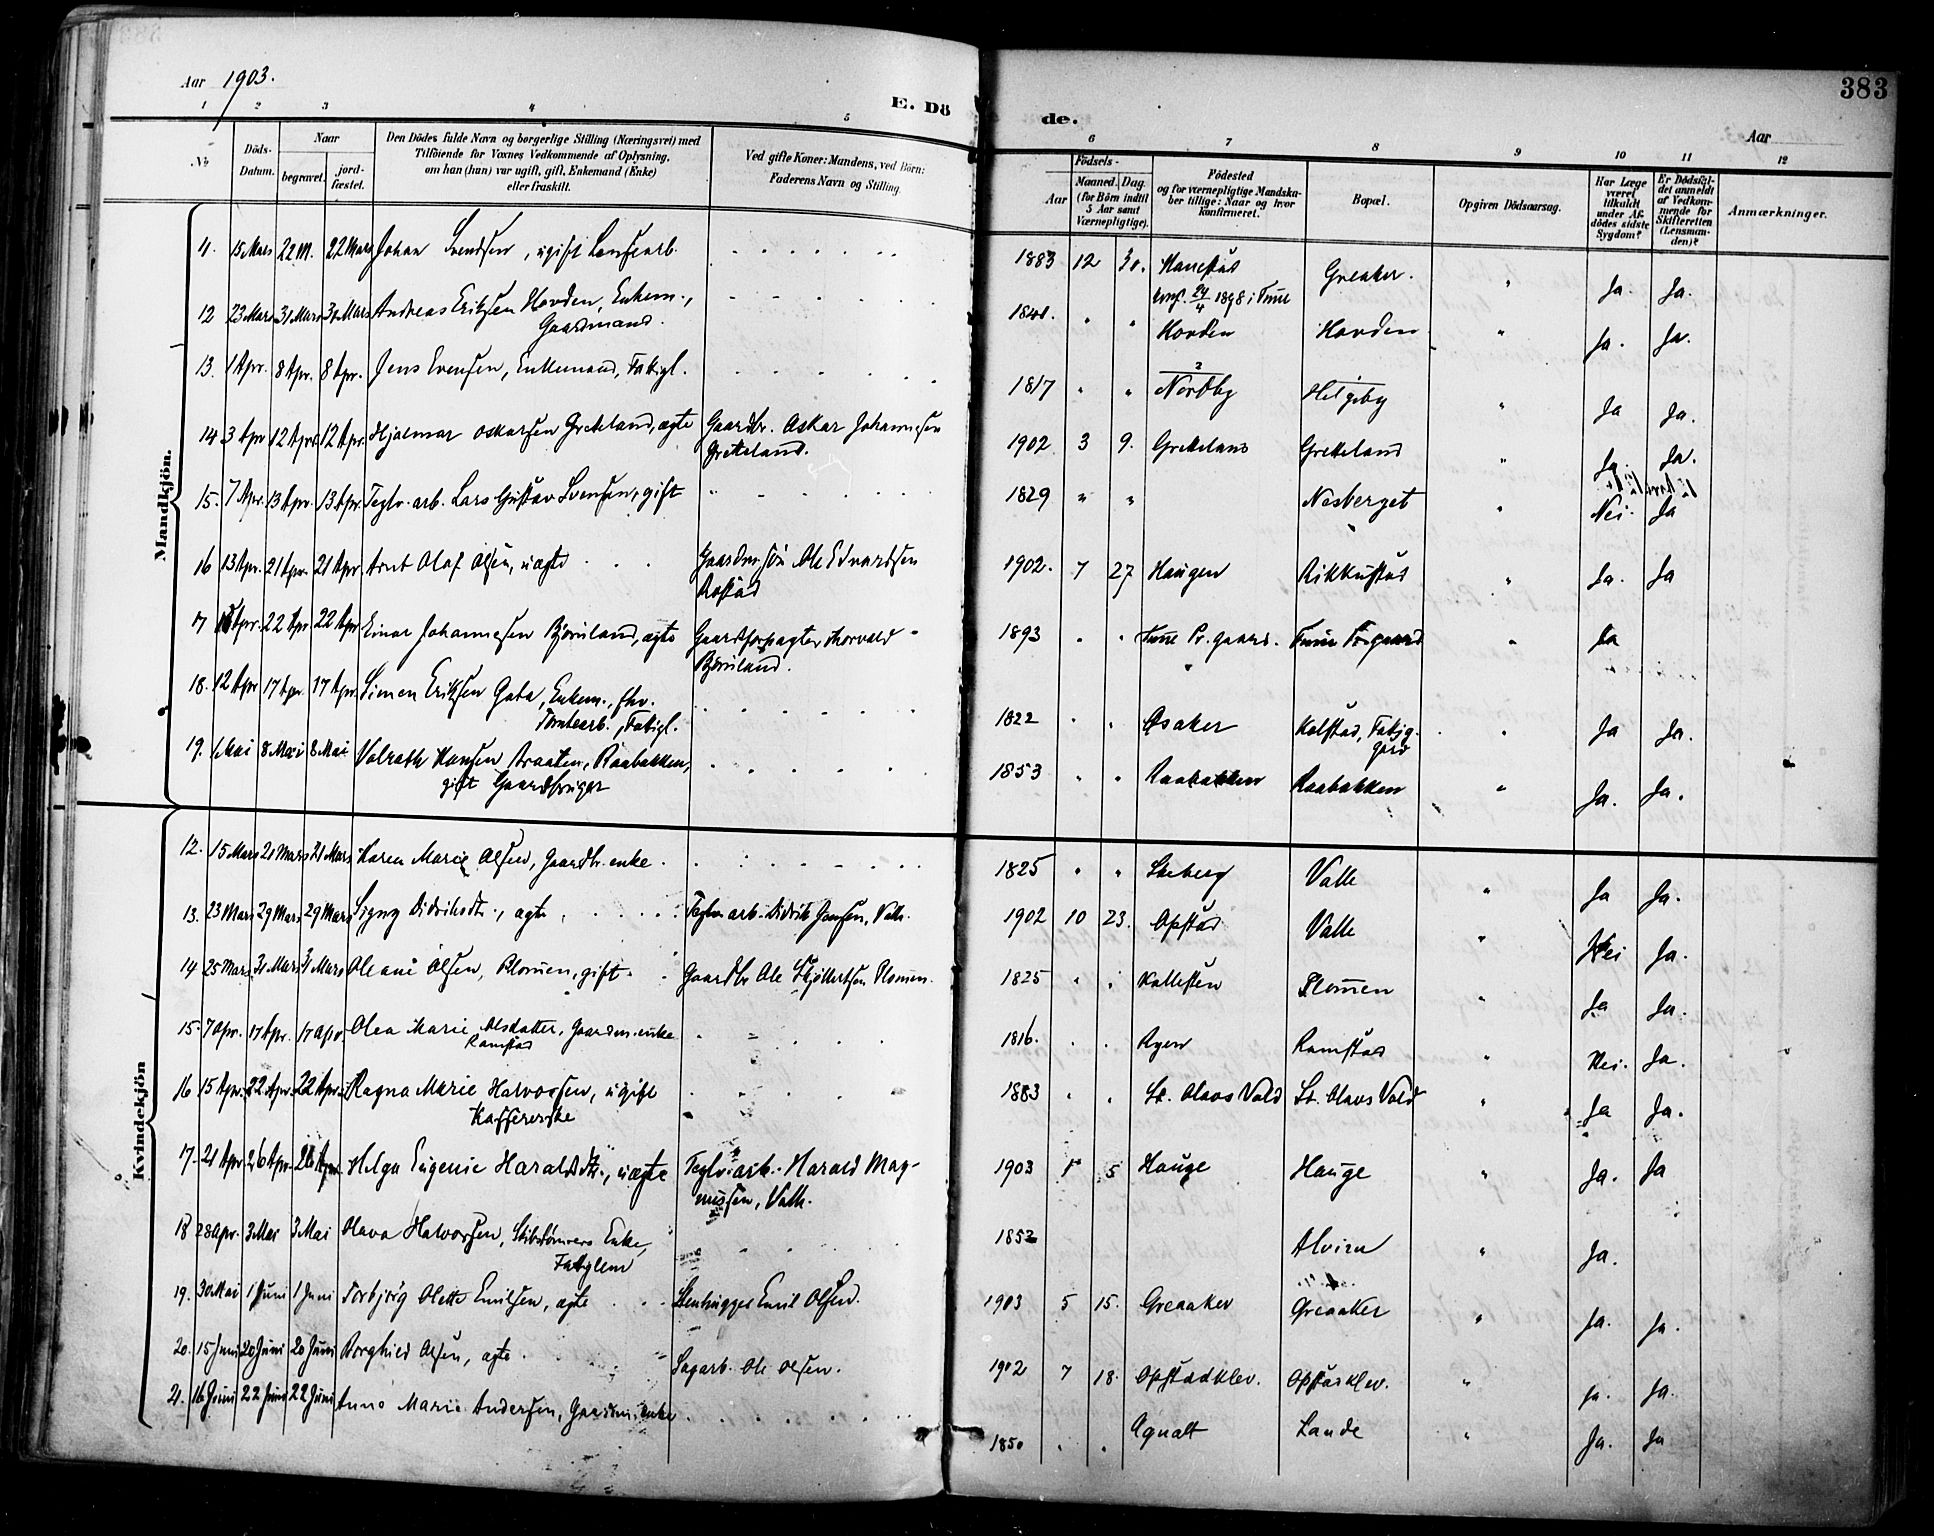 383
Aar 1903.
E. Dö de.
Aar
1 2 3 4 5 6 7 8 9 10 11 12
No
Döds-Datum.
Naar
begravet.
jord-fæstet.
Den Dödes fulde Navn og borgerlige Stilling (Næringsvei) med
Tilföiende for Voxnes Vedkommende af Oplysning,
om han (hun) var ugift, gift, Enkemand (Enke)
eller fraskilt.
Ved gifte Koner: Mandens, ved Börn:
Faderens Navn og Stilling.
Födsels-
Aar
Maaned. Dag.
(for Börn indtil
5 Aar samt
Værnepligtige).
Födested
og for værnepligtige Mandska-
ber tillige: Naar og hvor
konfirmeret.
Bopæl.
Opgiven Dödsaarsag.
Har Læge
været
tilkaldt
under Af-
dödes sidste
Sygdom?
Er Dödsfal-
det anmeldt
af Vedkom-
mende for
Skifteretten
(Lensman-
den)?
Anmærkninger.
Mandkjön.
15 Mars 22 M. 22 Mars Johan Svendsen, ugift 1883 12 30. Greaker. " Ja. Ja.
konf. 24/4 1898 i Tune
12 23 Mars 31 Mars 31 Mars Andreas Eriksen Hovden, Enkem., 1841. " " Hovden Hovden " Ja. Ja.
Gaardmand.
13. 1 Apr. 8 Apr. 8 Apr. Jens Evensen, Enkemand, Fattigl. 1817 " " Nordby Helgeby " Ja Ja.
14. 3 Apr 12 Apr. 12 Apr. Hjalmar Oskarsen Greteland, ægte Gaardbr. Oskar Johannesen 1902 3 9. Greteland Greteland " Ja. Ja.
Greteland.
15. 7 Apr. 13 Apr. 13 Apr. Teglv. arb. Lars Gustav Svensen, gift 1829 " " Nesberget " Nei. Ja
16 13 Apr. 21 Apr. 21 Apr. Arnt Olaf Olsen, uægte Ole Edvardsen 1902. 7 27 Haugen Rikkustad " Ja. Ja
17 Apr. 22 Apr. 22 Apr. Einar Johannesen Bjørnland, ægte Gaardforpagter Thorvald 1893 " " Tune Pr.gaard. Tune Pr.gaard " Ja
Bjørnland.
18. 12 Apr 17 Apr. 17 Apr. Simen Eriksen Gata, Enkem., fhv. 1822 " " Osaker Kolstad, Fattig- " Ja Ja.
Tomtearb., Fattigl. gard
19. 1 Mai 8 Mai 8 Mai Volrath Hansen Braaten, Raabakken, 1853 " " Raabakken Raabakken " Ja. Ja.
gift Gaardbruger
Kvindekjön
12. 15 Mars 21 Mars 21 Mars Karen Marie Olsen, Gaardbr. enke. 1825 " " Valle " Ja Ja.
13. 23 Mars 29 Mars 29 Mars Signy Didriksdtr., ægte Teglv. arb. Didrik Jensen, Valle. 1902 10 23. Opstad Valle " Nei Ja.
14 25 Mars 31 Mars 31 Mars Oleane Olsen, Blomen, gift Gaardbr Ole Skjöllertsen Blomen. 1825 " " Kallesten Blomen " Ja Ja.
15. 7 Apr. 17 Apr. 17 Apr Olea Marie Olsdatter, Gaardm. enke 1816. " " Ryen Ramstad " Nei. Ja.
Ramstad
16 15 Apr. 22 Apr. 22 Apr. Ragna Marie Halvorsen, ugift 1883 " " St. Olavs Vold St. Olavs Vold " Ja Ja.
17. 21 Apr 26 Apr. 26 Apr. Helga Eugenie Haraldsdtr., uægte Teglv. arb. Harald Mag- 1903 1 5 Hauge Hauge " Ja. Ja
nussen, Valle.
18 28 Apr. 3 Mai 3 Mai Olava Halvorsen, Skibstømrers Enke, 1852 Alvim " Ja.
Fattiglem
19. 30 Mai 1 Juni 1 Juni Torbjørg Olette Emilsen, ægte Stenhugger Emil Olsen. 1903 5 15. Greaaker Greaaker " Ja. Ja.
20. 15 Juni 20 Juni 20 Juni Borghild Olsen, ægte Sagarb. Ole Olsen. 1902 7 18. Opstadklev. Opstadklev. " Ja. Ja.
21. 16 Juni 22 Juni 22 Juni Anne Marie Andersen, Gaardm. enke 1850 " " Agnalt Lande " Ja. Ja